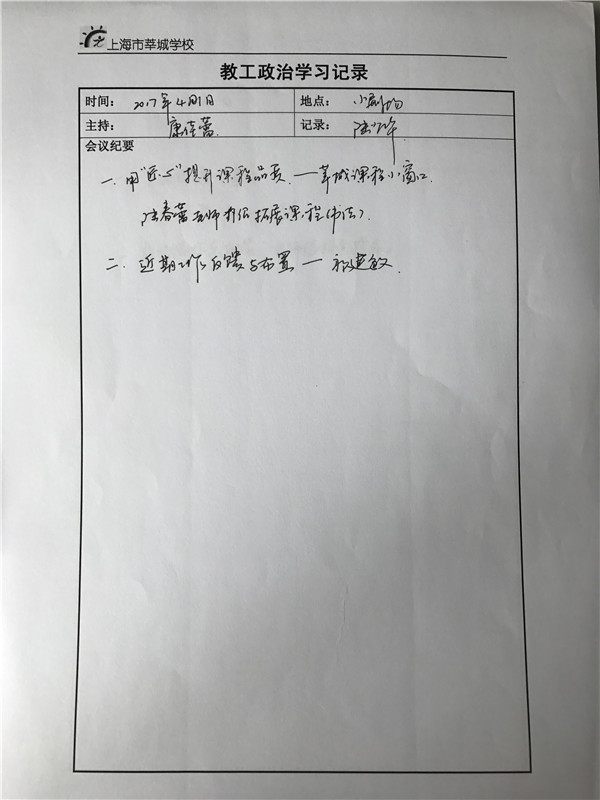 上海市莘城学校
教工政治学习记录
时间： 2017年4月11日 地点： 小剧场
主持： 康佳蕾 记录：
会议纪要
一. 用"匠心"提升课程品质.——莘城课程小窗口.
陆春蕾老师介绍拓展课程(书法).
二. 近期工作反馈与布置 — 祝建敏.